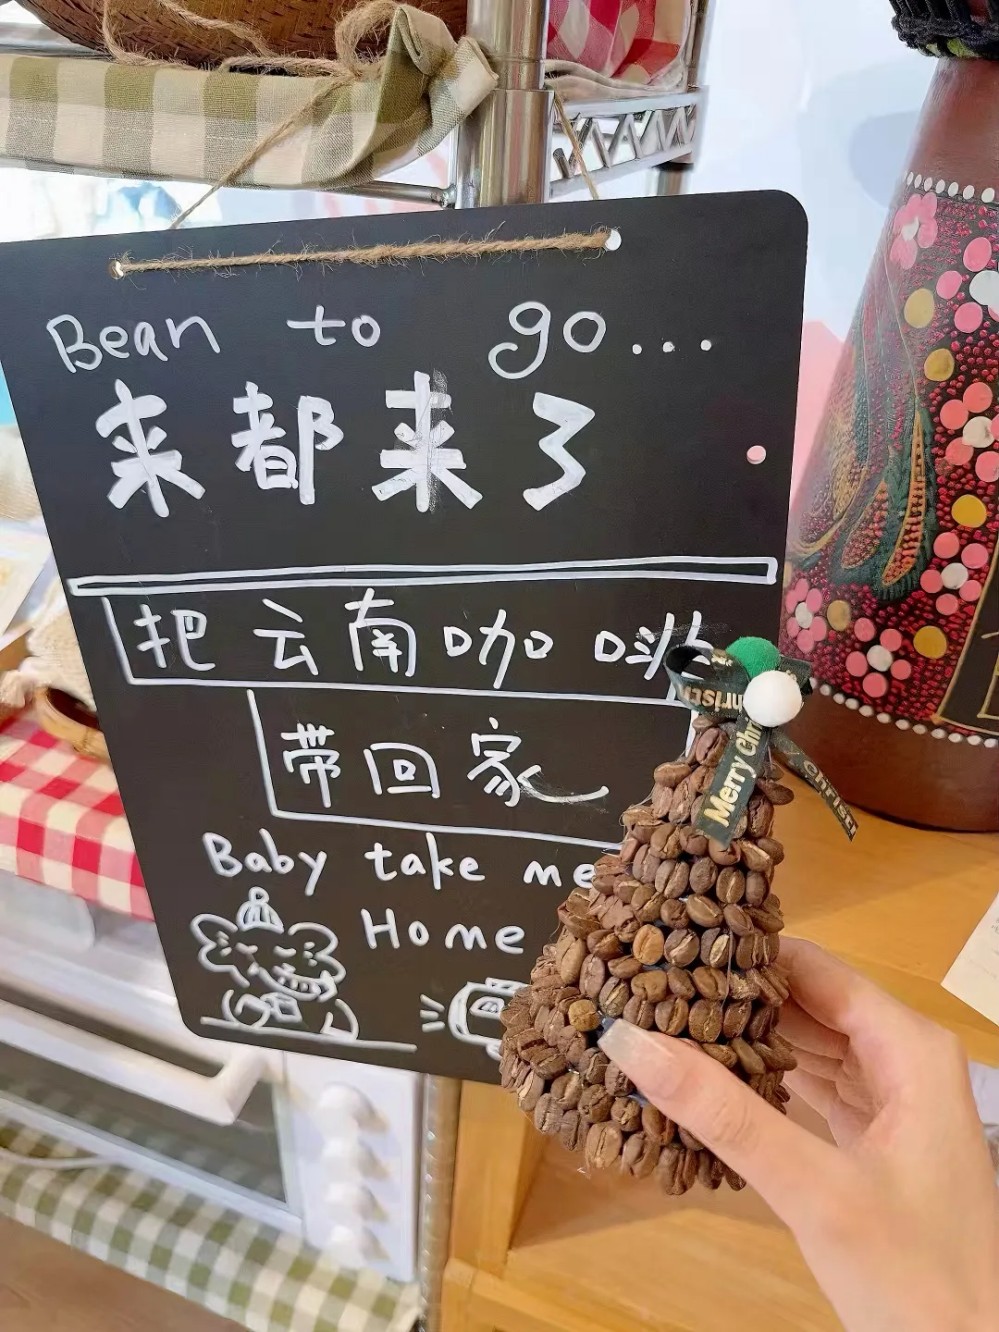 Bean to go...
来都来了
把云南咖啡
带回家
Baby take me
Home
Merry Chri
christ